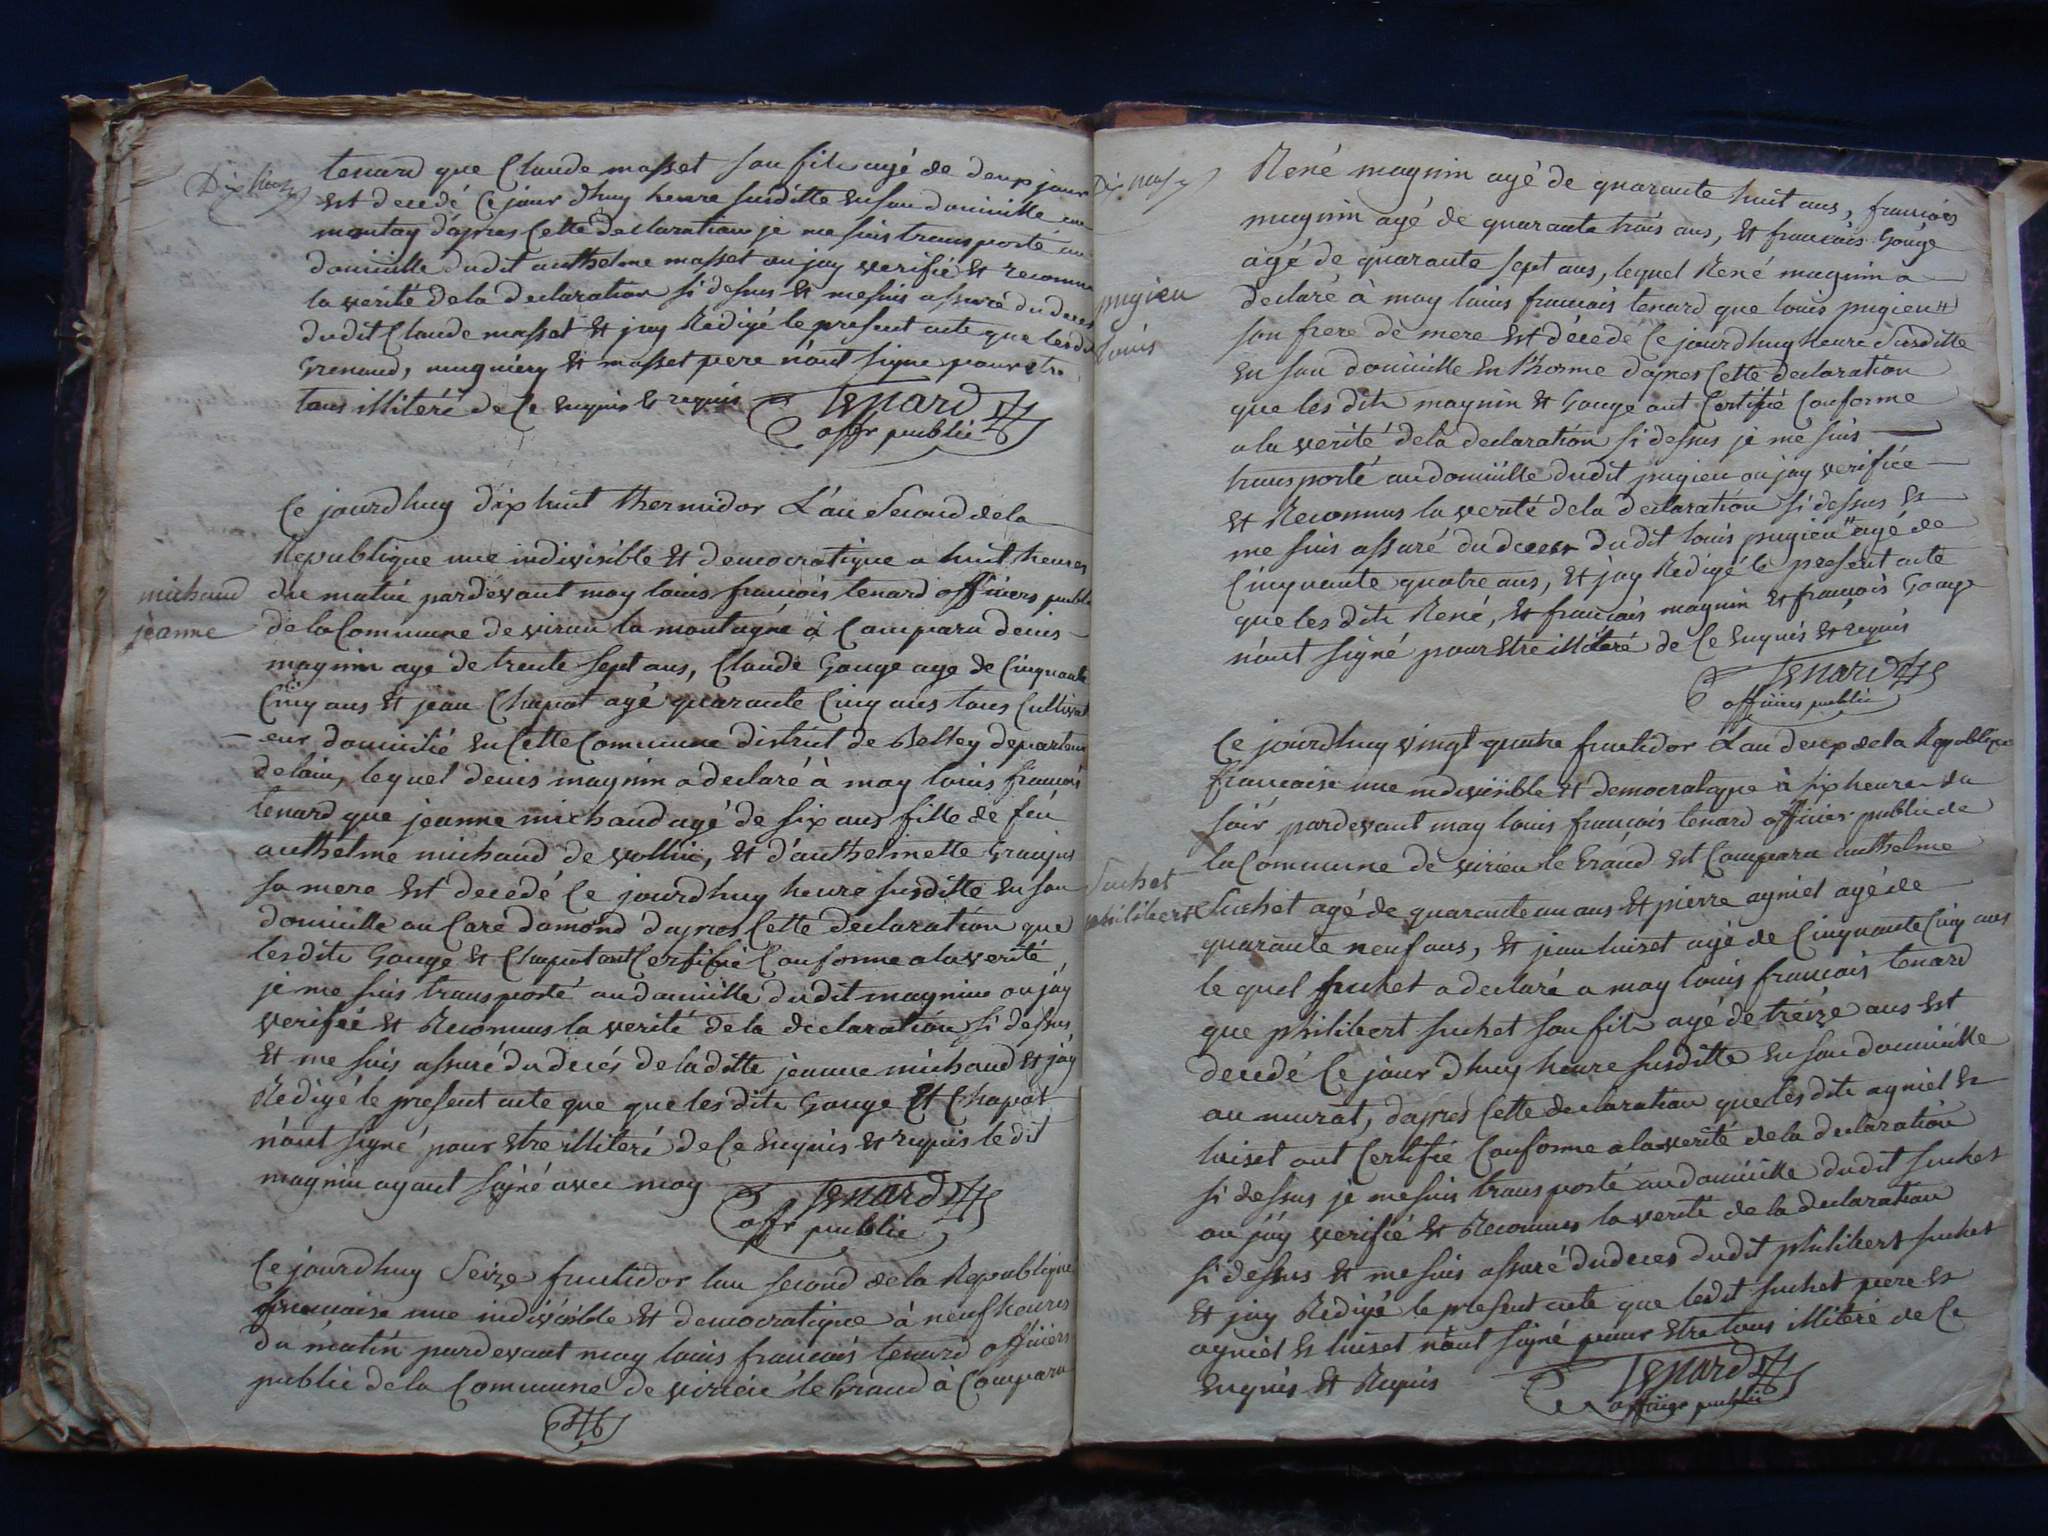 Dix huit
tenard que Claude masset son fils agé de deux jour
est decedé Ce jour dhuy heure susditte en son domicille au
montay d'apres Cette declaration je me suis transporté au
domicille dudit anthelme masset ou jay verifié et reconnu
la verité de la declaration si desus et me suis assuré du deces
dudit Claude masset et jay Redigé le present acte que lesdit
Grenaud, mugniery et masset pere n'ont signe pour etre
tous illiteré de Ce enquis et requis Tenard
offr public
Ce jourdhuy dix huit thermidor L'an Second de la
Republique une indivisible et democratique a huit heures
michaud
jeanne
du matin pardevant moy louis francois tenard officiers public
de la Commune de virieu la montagne à Comparu denis
magnin age de trente sept ans, Claude Gouge age de Cinquante
Cinq ans et jean Chapot agé quarante Cinq ans tous Cultivat
eur domicilié en Cette Commune district de Belley departem
de lain, lequel denis magnin a declaré à moy louis francois
tenard que jeanne michaud agé de six ans fille de feu
anthelme michaud de vollin, et d'anthelmette
sa mere est decedé Ce jourdhuy heure susditte en son
domicille au Care damond d'apres Cette declaration que
lesdits Gouge et Chapot ont Certifié Conforme a la verité,
je me suis transporté au domicille dudit magnin ou jay
verifié et Reconnus la verité de la declaration si dessus
et me suis assuré du decés de laditte jeanne michaud et jay
Redigé le present acte que que les dits Gouge et Chapot
n'ont signé pour etre illiteré de Ce enquis et requis le dit
magnin ayant signé avec moy Tenard
offr public
Ce jourdhuy Seize fructidor lan second de la Republique
francaise une indivisible et democratique à neuf heures
du matin pardevant moy louis francois tenard officiers
public de la Commune de virieu le Grand à Comparu
Dix neuf
René magnin agé de quarante huit ans, francois
magnin agé de quarante trois ans, et francois Gouge
agé de quarante sept ans, lequel René magnin a
pugieu
louis
declaré à moy louis francois tenard que louis pugieu
son frere de mere est décedé Ce jourdhuy heure susditte
en son domicille en d'apres Cette declaration
que les dits magnin et Gouge ont Certifié Conforme
a la verité de la declaration si dessus je me suis
transporté au domicille dudit pugieu ou jay verifiée
et Reconnus la verité de la declaration si dessus et
me suis assuré du deces dudit louis pugieu agé de
Cinquante quatre ans, et jay Redigé le present acte
que les dits René, et francois magnin et francois Gouge
n'ont signé pour etre illiteré de Ce enquis et requis
Tenard
officiers public
Ce jourdhuy vingt quatre fructidor L'an deux de la Republique
francaise une indivisible et democratique à six heures du
soir pardevant moy louis francois tenard officier public de
la Commune de virieu le Grand est Comparu anthelme
Suchet
philibert
Suchet agé de quarante un ans et pierre agniel agé de
quarante neuf ans, et jean luiset agé de Cinquante Cinq ans
le quel suchet a declaré a moy louis francois tenard
que philibert suchet son fils agé de treize ans est
decedé Ce jour dhuy heure susditte en son domicille
au murat, d'apres Cette declaration que lesdits agniel et
luiset ont Certifié Conforme a la verité de la declaration
si dessus je me suis transporté au domicille dudit suchet
ou jay verifié et Reconnus la verité de la declaration
si dessus et me suis assuré du deces dudit philibert suchet
et jay Redigé le present acte que ledit suchet pere et
agniel et luiset n'ont signé pour etre tous illiteré de Ce
enquis et Requis Tenard
officier public